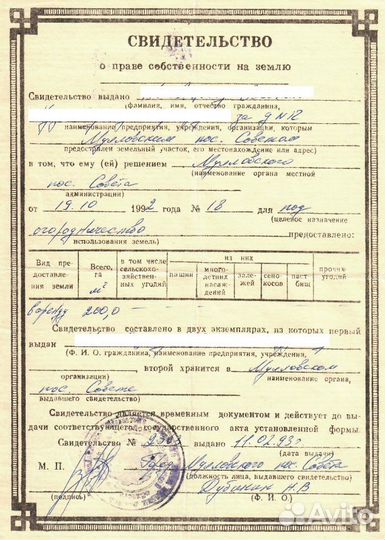 СВИДЕТЕЛЬСТВО
о праве собственности на землю
Свидетельство выдано
(фамилия, имя, отчество гражданина,
за д N12
наименование предприятия, учреждения, организации, которым
Мулловским пос. Советом
предоставлен земельный участок, его местонахождение или адрес)
в том, что ему (ей) решением Мулловского
(наименование органа местной
пос. Совета
администрации)
от 19.10 1992 года № 18 для под
(целевое назначение
огородничество предоставлено:
использования земель)
Вид предоставления земли Всего, га м² в том числе сельскохозяйственных угодий из них прочих угодий
пашни многолетних насаждений залежей сенокосов пастбищ
в аренду 200,0 -
Свидетельство составлено в двух экземплярах, из которых первый
выдан
(Ф. И. О. гражданина, наименование предприятия, учреждения,
второй хранится в Мулловском
организации) наименование органа,
пос. Совете
выдавшего свидетельство)
Свидетельство является временным документом и действует до вы-
дачи соответствующего государственного акта установленной формы.
Свидетельство № выдано 11.02.93г
(дата выдачи)
М. П. Мулловского пос. Совета
(должность лица, выдавшего свидетельство)
(подпись) (Ф. И. О.)
Avito